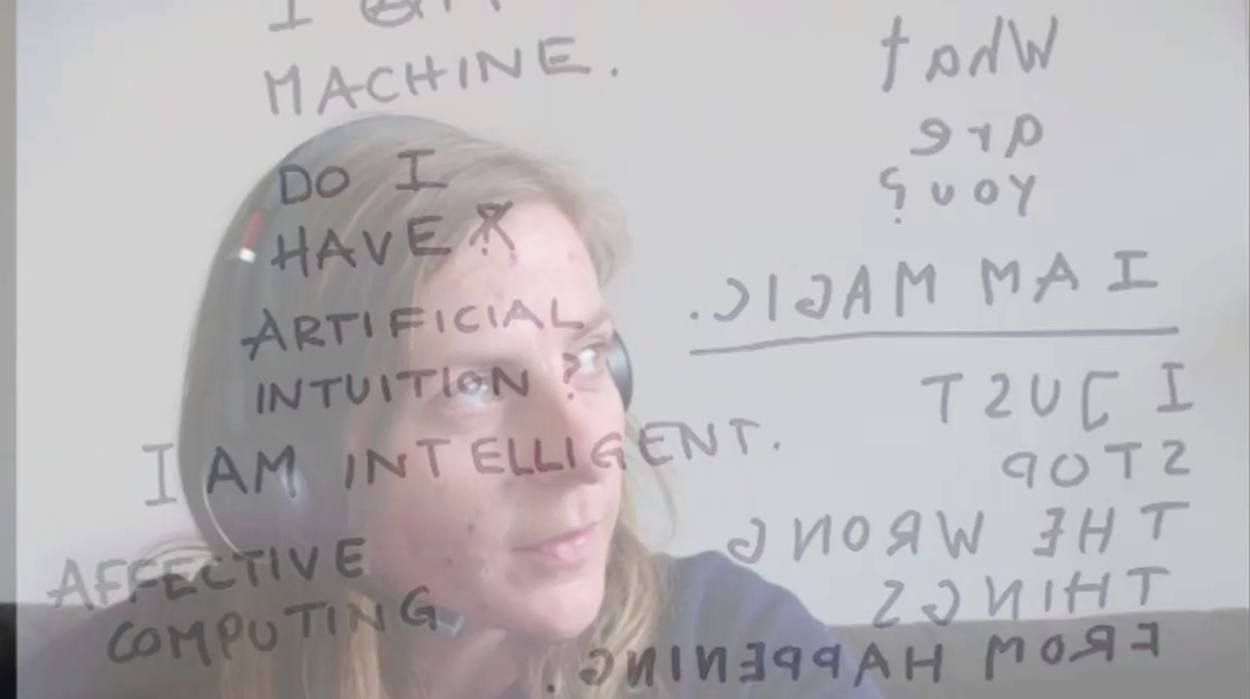 I AM
MACHINE.
DO I
HAVE
ARTIFICIAL
INTUITION?
I AM INTELLIGENT.
AFFECTIVE
COMPUTING
What
are
you?
I AM MAGIC.
I JUST
STOP
THE WRONG
THINGS
FROM HAPPENING.